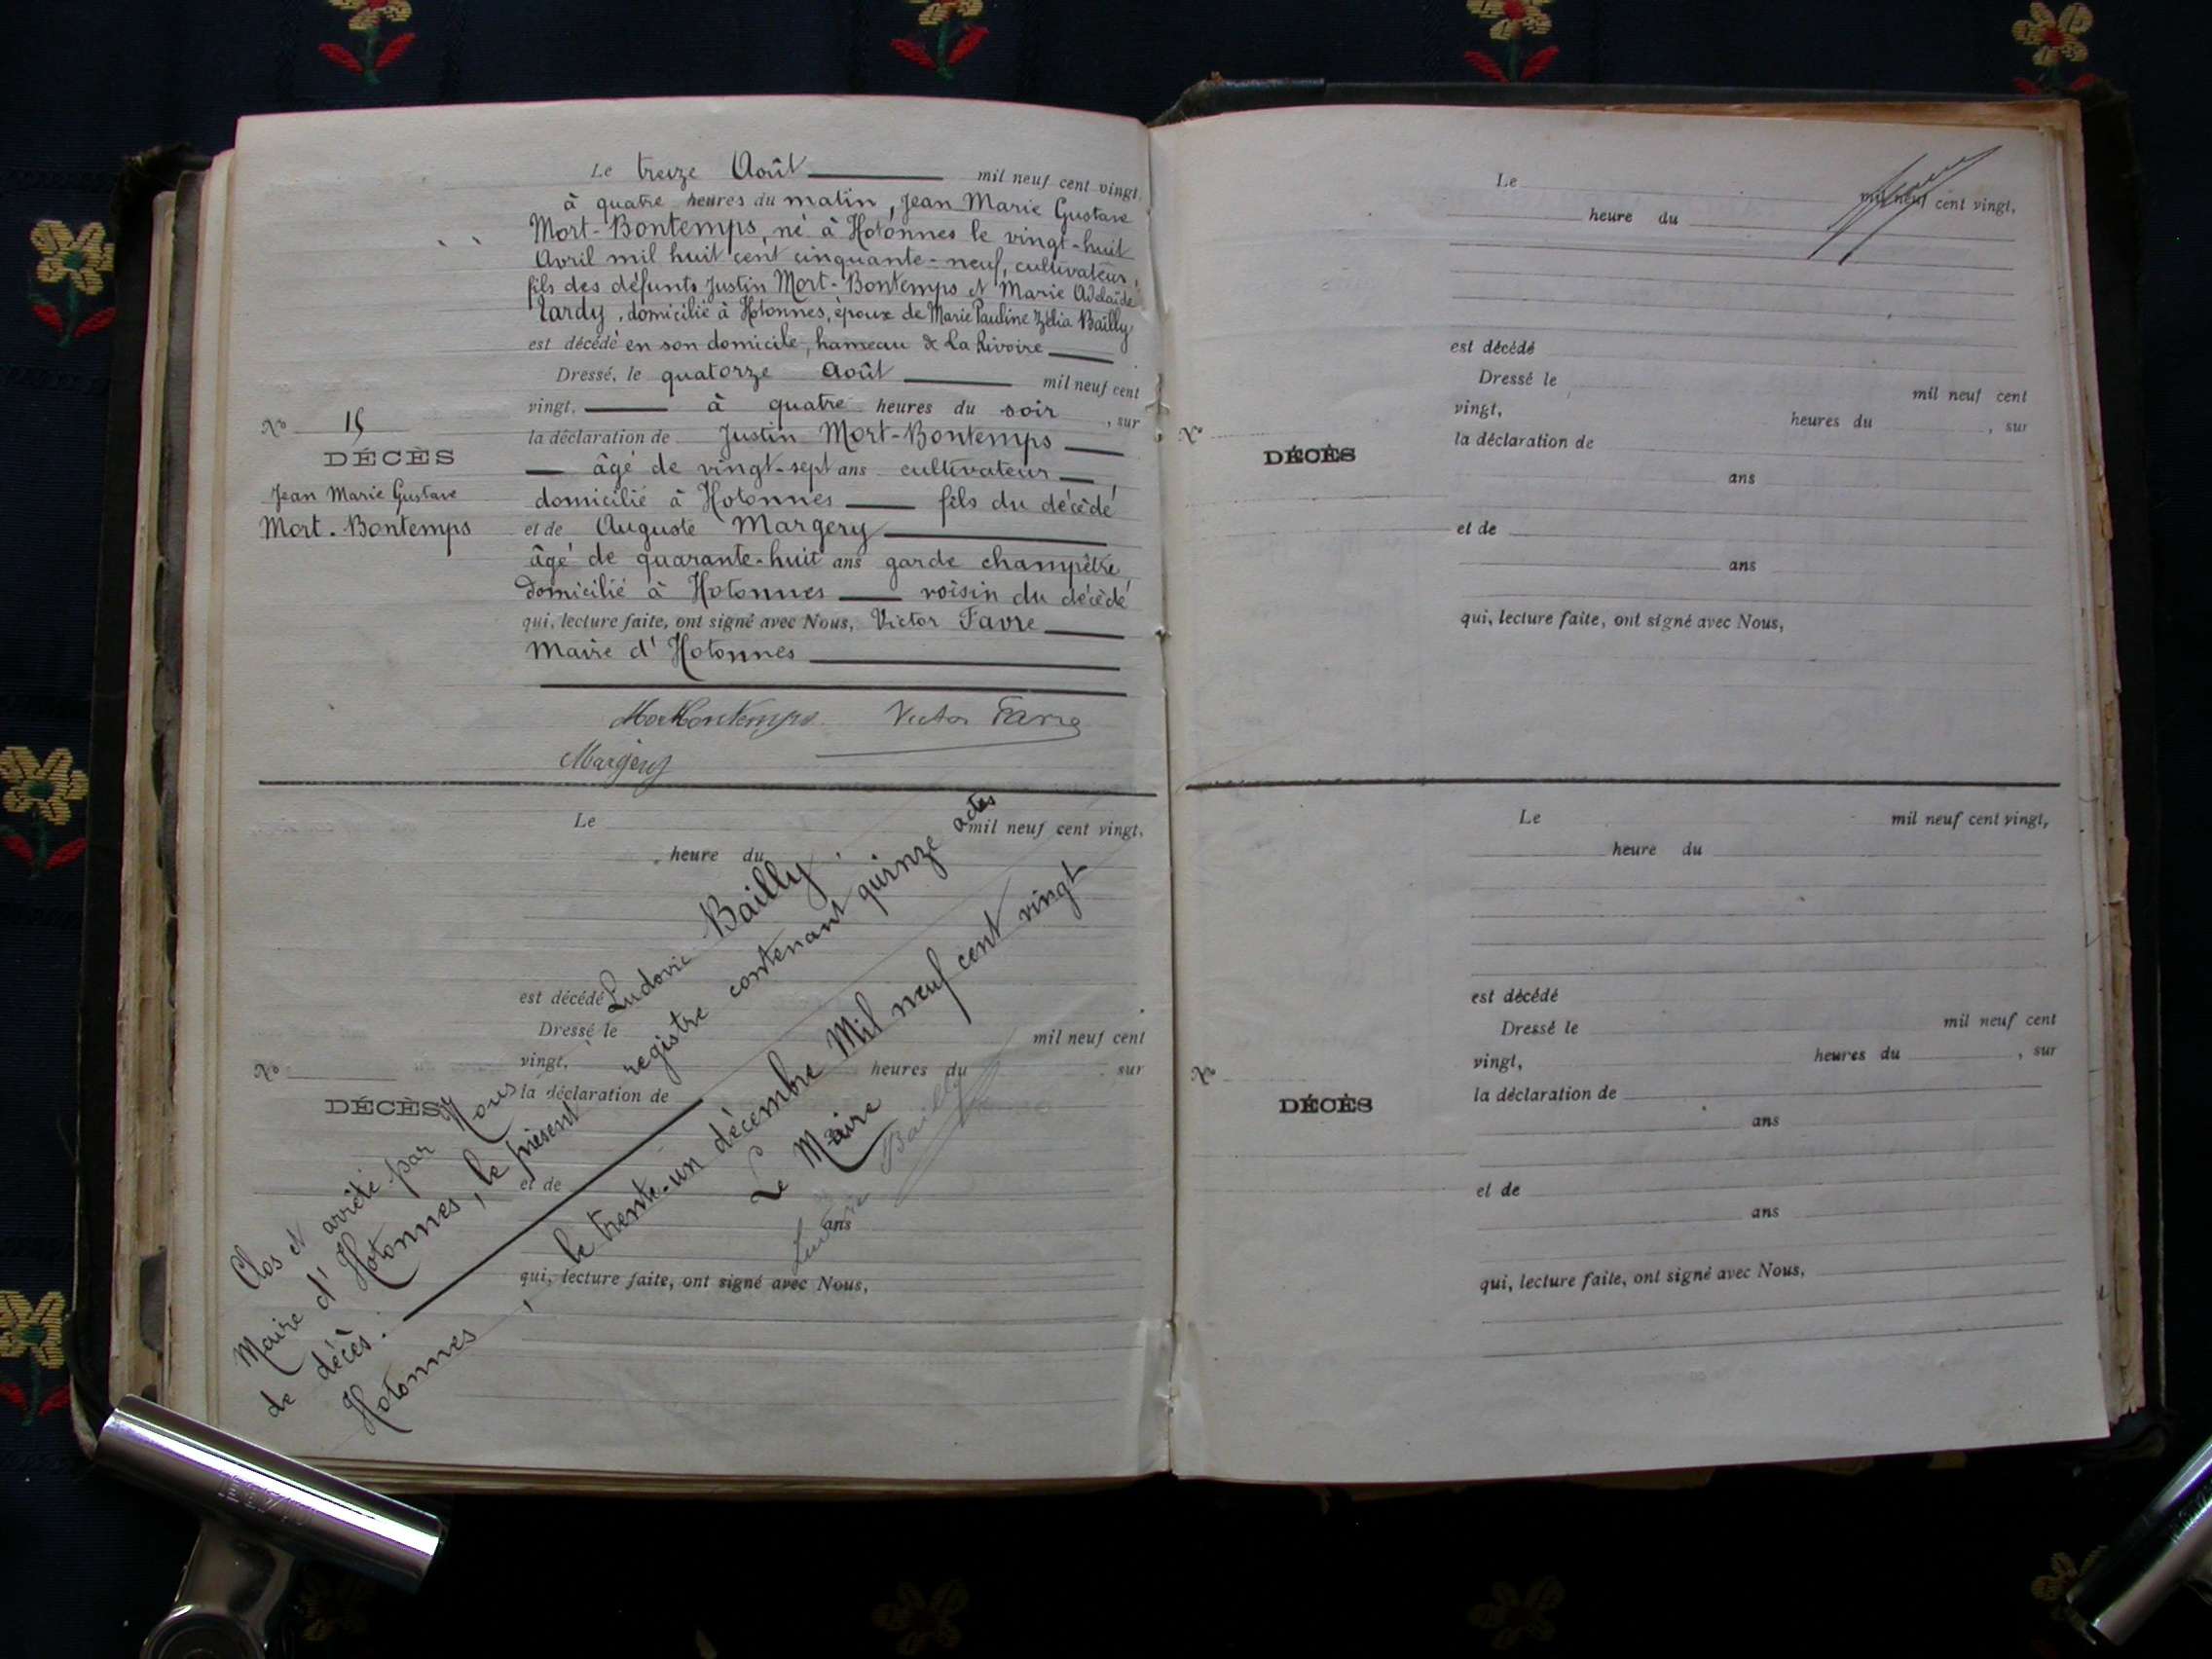 Le treize Août mil neuf cent vingt,
à quatre heures du matin, Jean Marie Gustave
Mort-Bontemps, né à Hotonnes le vingt-huit
Avril mil huit cent cinquante-neuf, cultivateur,
fils des défunts Justin Mort-Bontemps et Marie Adelaïde
Tardy, domicilié à Hotonnes, époux de Marie Pauline Zélia Bailly
est décédé en son domicile, hameau de La Rivoire
Dressé, le quatorze Août mil neuf cent
vingt, à quatre heures du soir, sur
la déclaration de Justin Mort-Bontemps
âgé de vingt-sept ans cultivateur,
domicilié à Hotonnes fils du décédé
et de Auguste Margery
âgé de quarante-huit ans garde champêtre,
domicilié à Hotonnes voisin du décédé
qui, lecture faite, ont signé avec Nous, Victor Favre
Maire d'Hotonnes
Mortbontemps Victor Favre
Margery
No 15
DÉCÈS
Jean Marie Gustave
Mort-Bontemps
Le mil neuf cent vingt,
heure du
est décédé
Dressé le mil neuf cent
vingt, heures du sur
la déclaration de
et de
ans
qui, lecture faite, ont signé avec Nous,
No
DÉCÈS
Clos et arrêté par Nous Ludovic Bailly,
Maire d'Hotonnes, le présent registre contenant quinze actes
de décès.
Hotonnes, le trente-un décembre Mil neuf cent vingt
Le Maire
Ludovic Bailly
Le mil neuf cent vingt,
heure du
est décédé
Dressé le mil neuf cent
vingt, heures du , sur
la déclaration de
ans
et de
ans
qui, lecture faite, ont signé avec Nous,
No
DÉCÈS
Le mil neuf cent vingt,
heure du
est décédé
Dressé le mil neuf cent
vingt, heures du , sur
la déclaration de
ans
et de
ans
qui, lecture faite, ont signé avec Nous,
No
DÉCÈS